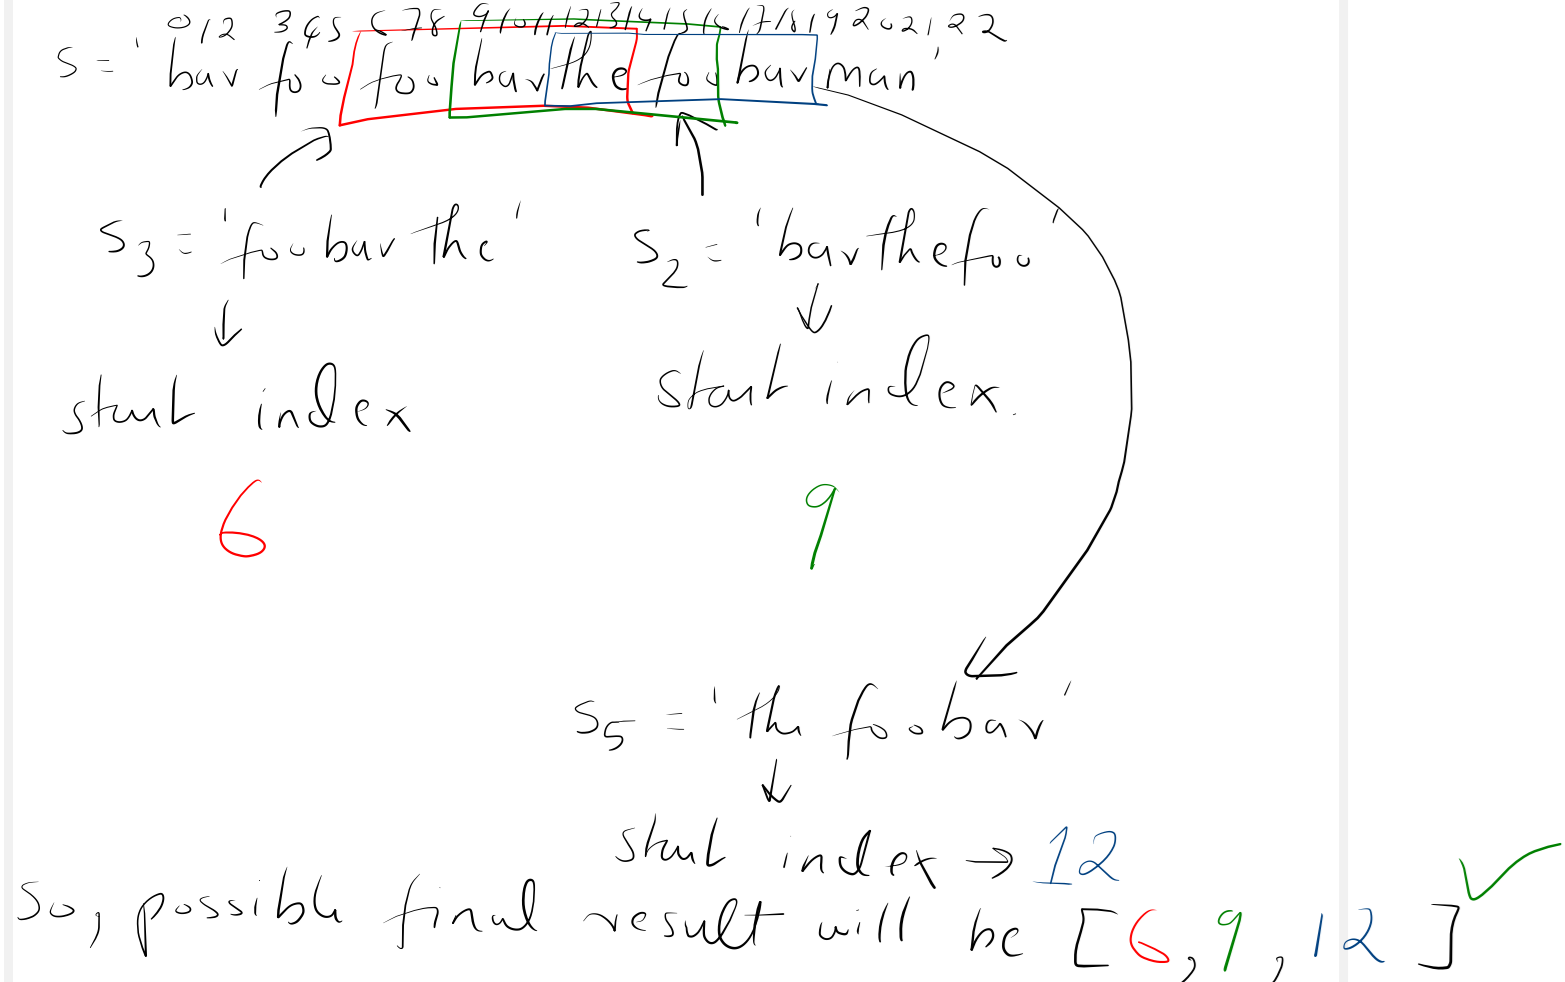 0 1 2 3 4 5 6 7 8 9 10 11 12 13 14 15 16 17 18 19 20 21 22
S = 'bar foo foo bar the foo bar man'
S3 = 'foobar the' S2 = 'barthefoo'
start index start index.
6 9
S5 = 'the foobar'
start index → 12
So, possible final result will be [6, 9, 12]